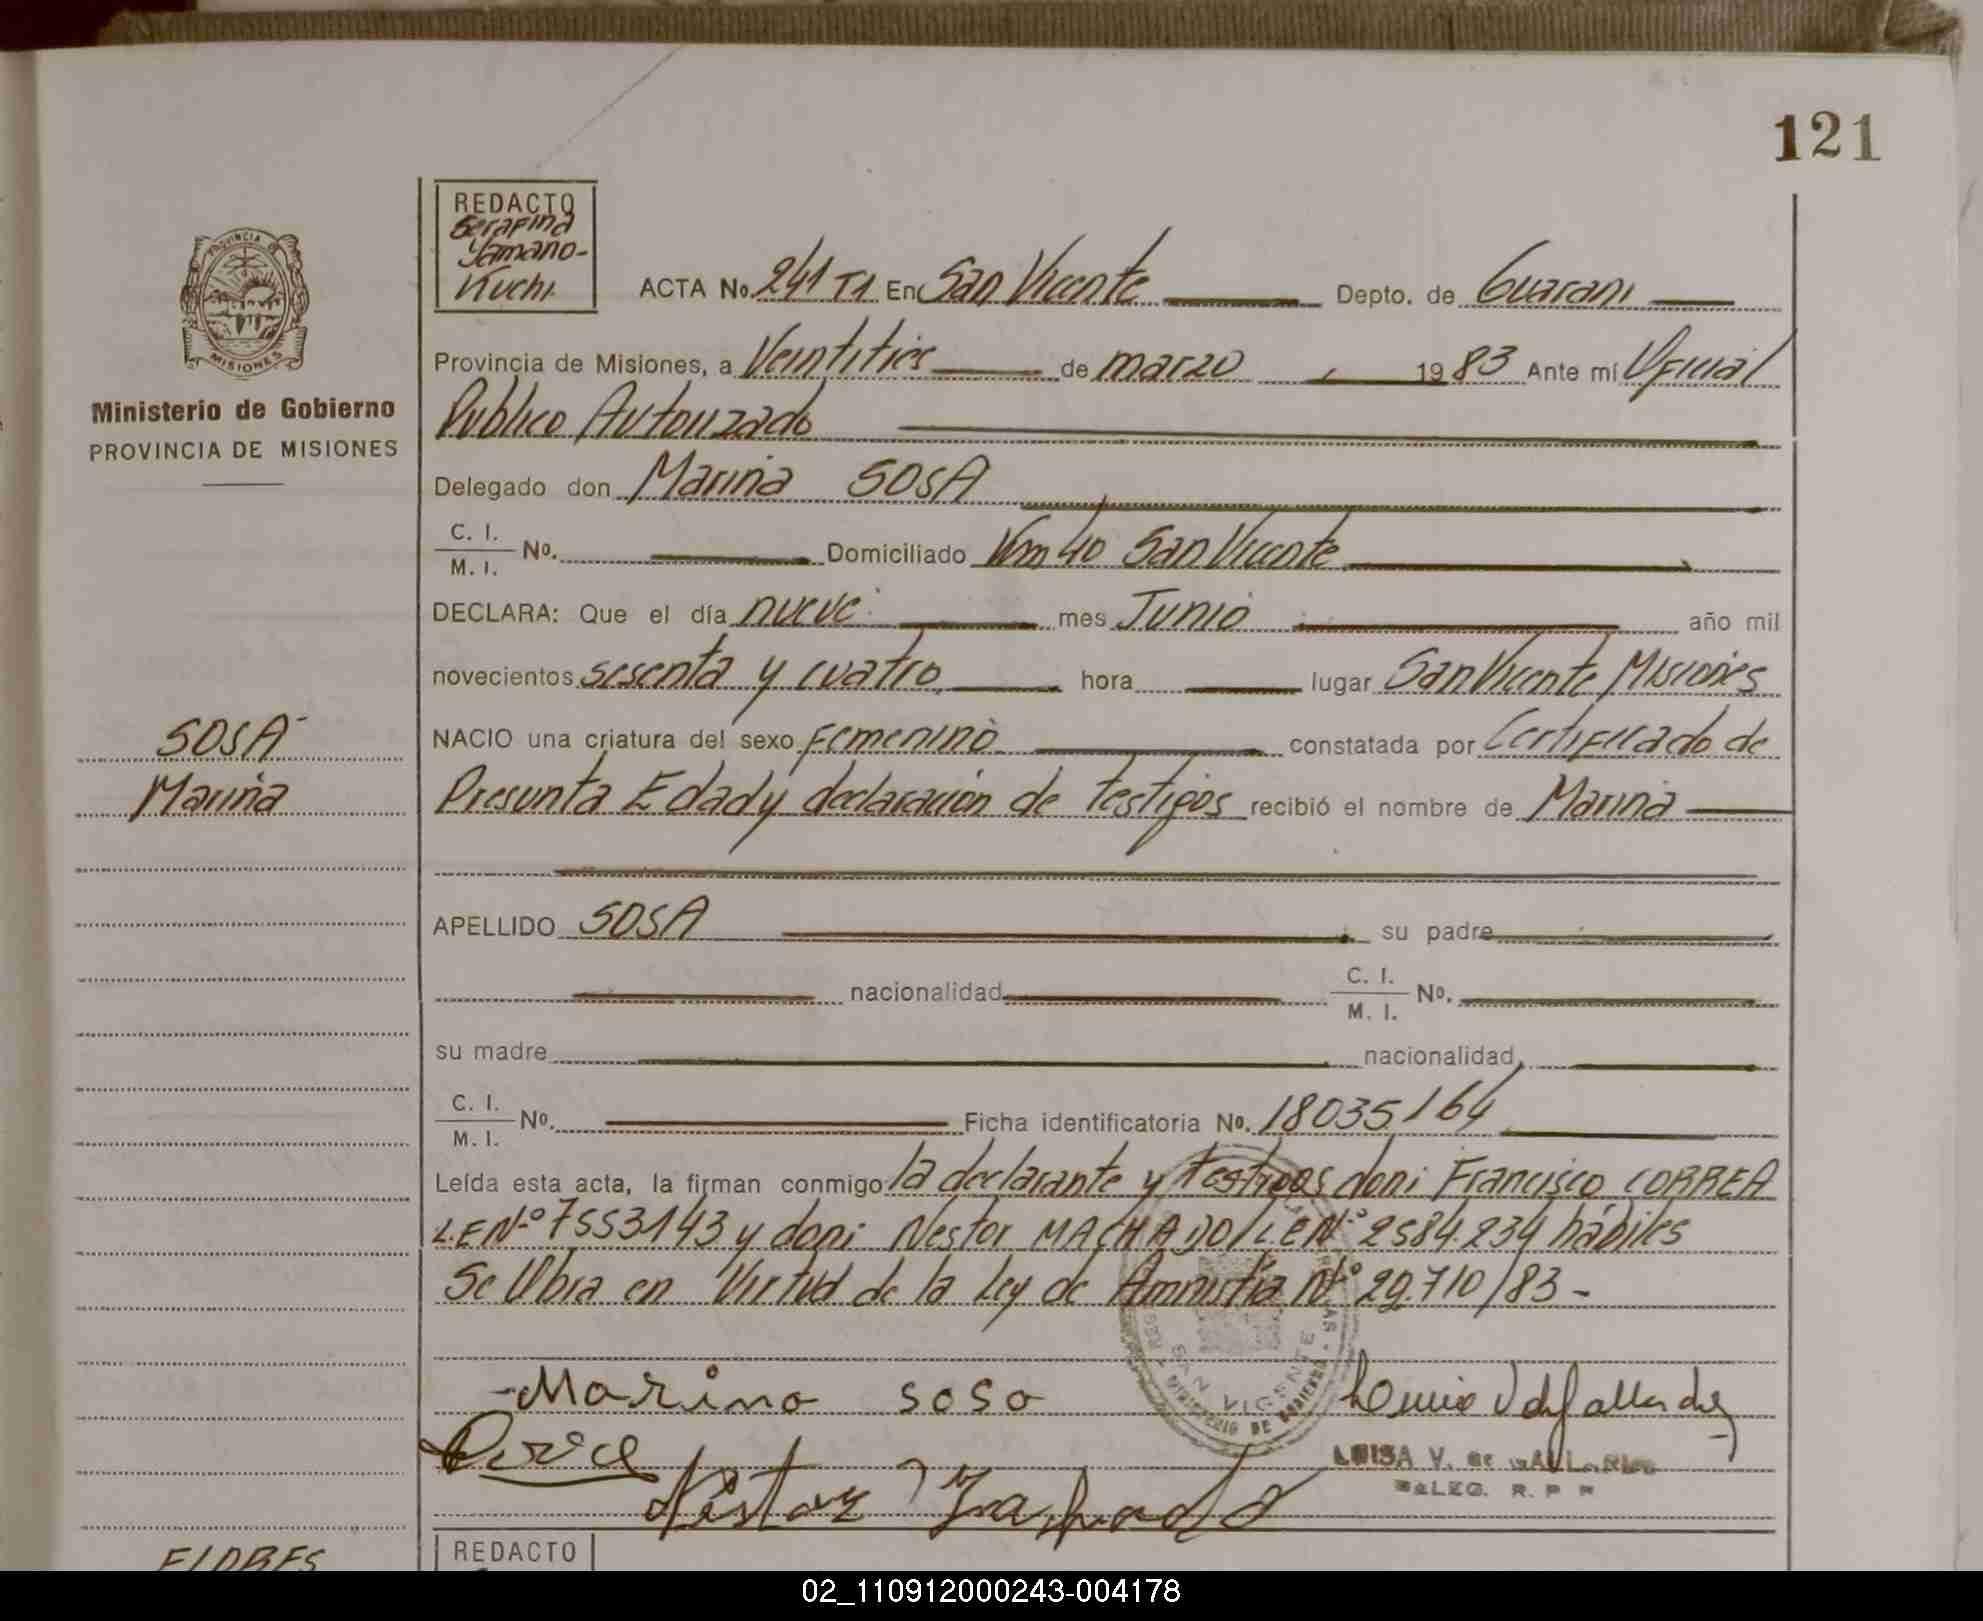 121
REDACTO
Serafina
Yamano-
Kuchi
PROVINCIA DE
MISIONES
Ministerio de Gobierno
PROVINCIA DE MISIONES
ACTA No. 241 T1 En San Vicente Depto. de Guarani
Provincia de Misiones, a Veintitres de marzo 1983 Ante mí Oficial
Publico Autorizado
Delegado don Marina SOSA
C. I. / M. I. No. Domiciliado Km 40 San Vicente
DECLARA: Que el día nueve mes Junio año mil
novecientos sesenta y cuatro hora lugar San Vicente Misiones
NACIO una criatura del sexo femenino constatada por Certificado de
Presunta Edad y declaración de testigos recibió el nombre de Marina
SOSA
Marina
APELLIDO SOSA su padre
nacionalidad C. I. / M. I. No.
su madre nacionalidad
C. I. / M. I. No. Ficha identificatoria No. 18035164
Leída esta acta, la firman conmigo la declarante y testigos don: Francisco CORREA
L.E Nº 7553143 y don: Nestor MACHADO L.E Nº 2584.234 hábiles
Se labra en Virtud de la Ley de Amnistía Nº 22.710/83 -
SAN VICENTE
MINISTERIO DE GOBIERNO
Marina soso
Nestor Machado
LUISA V. DE GALLARDO
DELEG. R. P. P.
FLORES
REDACTO
02_110912000243-004178